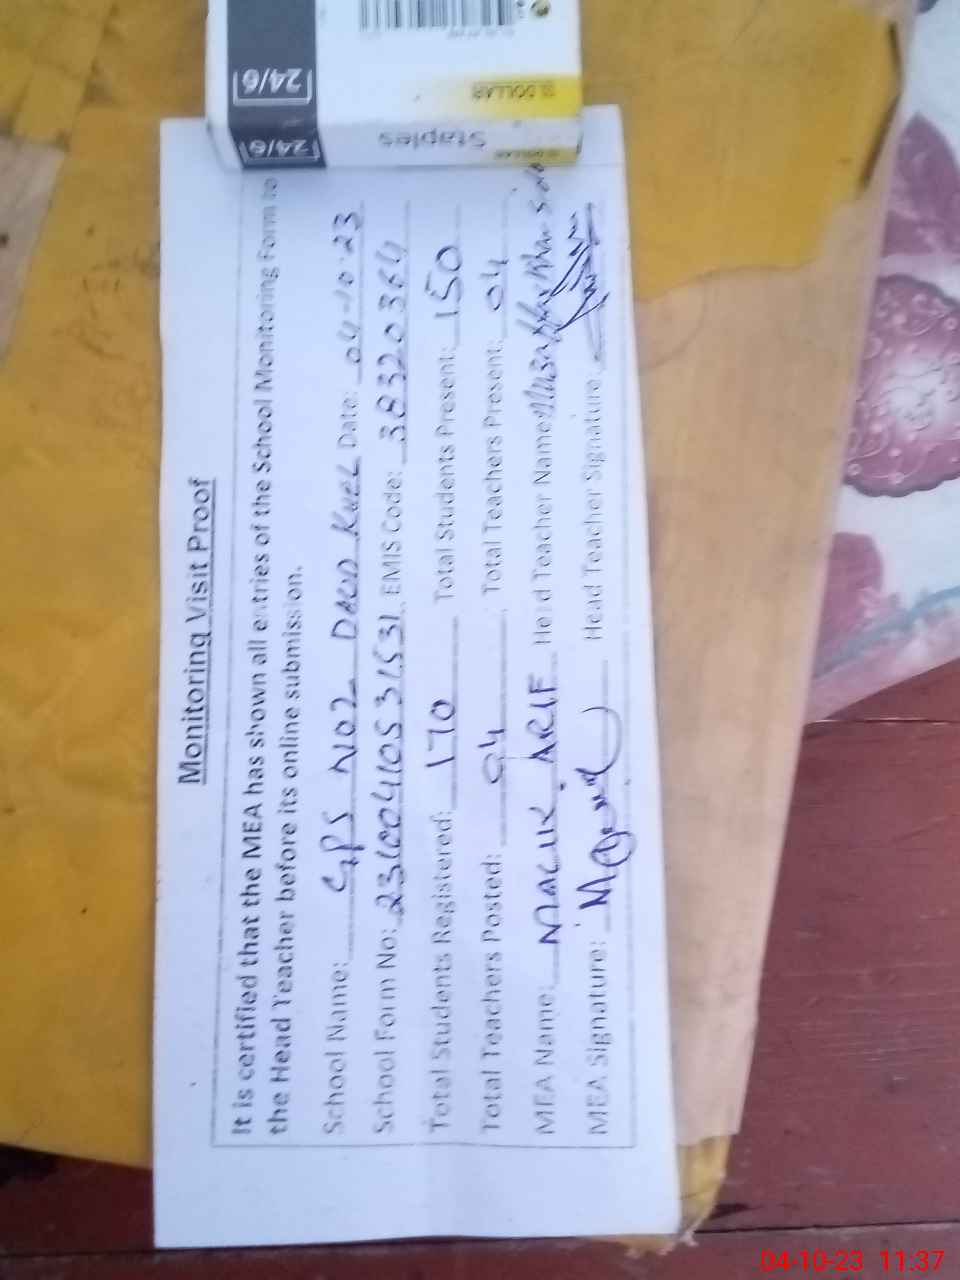 Monitoring Visit Proof
It is certified that the MEA has shown all entries of the School Monitoring Form to
the Head Teacher before its online submission.
School Name: GPS NO2 DAUD KHEL Date: 04-10-23
School Form No: EMIS Code: 38320364
Total Students Registered: 170 Total Students Present: 150
Total Teachers Posted: 04 Total Teachers Present: 04
MEA Name: MALIK ARIF Head Teacher Name:
MEA Signature: Head Teacher Signature:
24/6
DOLLAR
24/6
Staples
DOLLAR
04-10-23 11:37